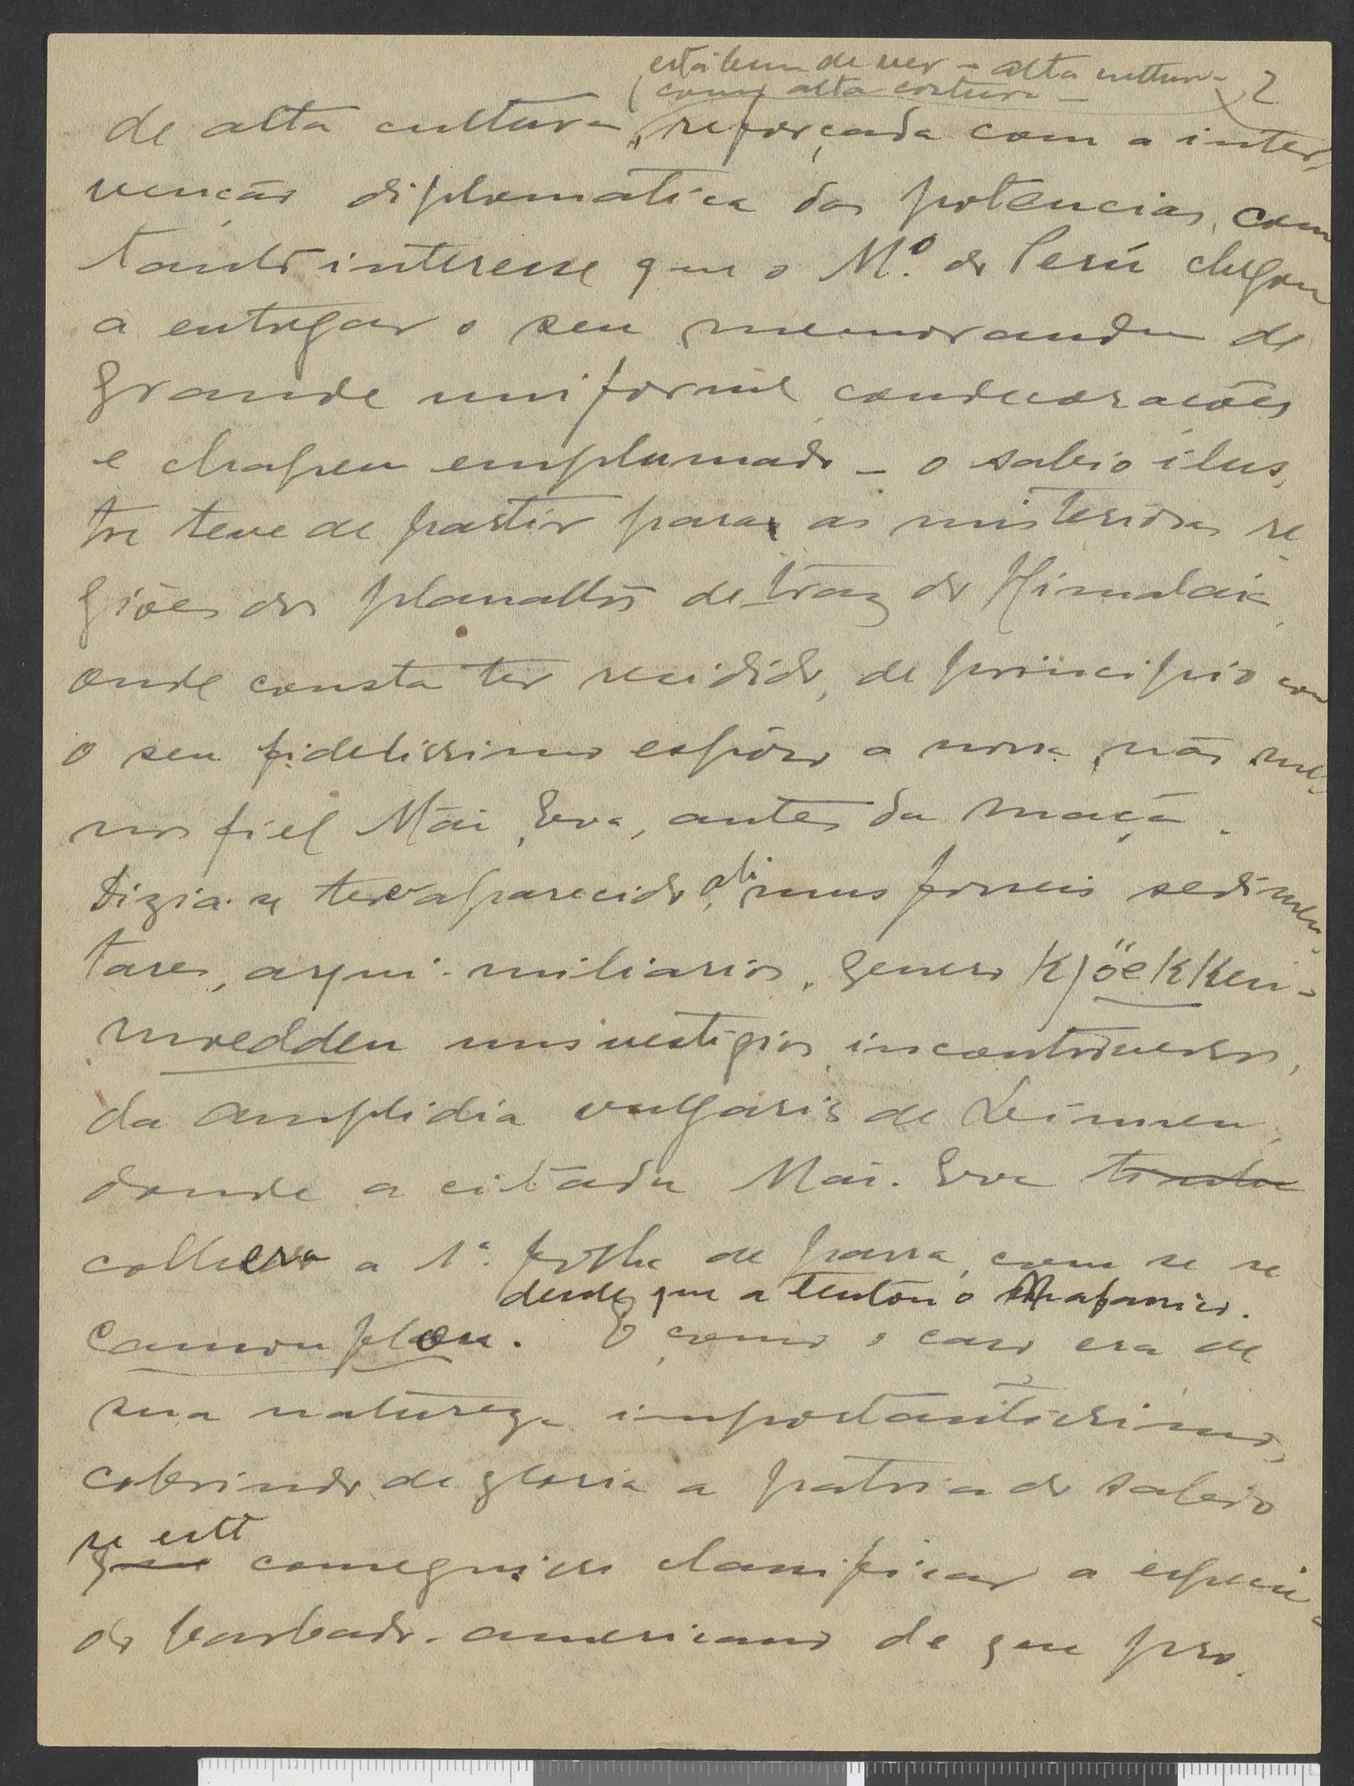 está bem de ver - alta cultura 2
com alta costura -
de alta cultura, reforçada com a inter,
venção diplomatica das potencias, com
tanto interesse que o Mº. do Perú chegou
a entregar o seu memorandu de
grande uniforme condecorações
e chapeu emplumado - o sabio ilus,
tre teve de partir para as misteriosas re
giões dos planaltos de traz do Himalaia,
onde consta ter residido, de principio com
o seu fidelissimo espôso a nossa não me,
nos fiel Mãi Eva, antes da maçã.
Dizia-se ter aparecido ali, nuns forneis sedimen,
tares, arqui-miliarios, genero Kjöekken-
moedden uns vestigios incontroversos,
da amplidia vulgaris de
donde a citada Mãi. Eva
colhera a 1ª. folha de parra com que se
desde que a tentou o
camouflou. E como o caso era de
sua natureza importantissimo,
cobrindo de gloria a patria do sabio
se este
que conseguisse classificar a especie
do barbado-americano de que pro.